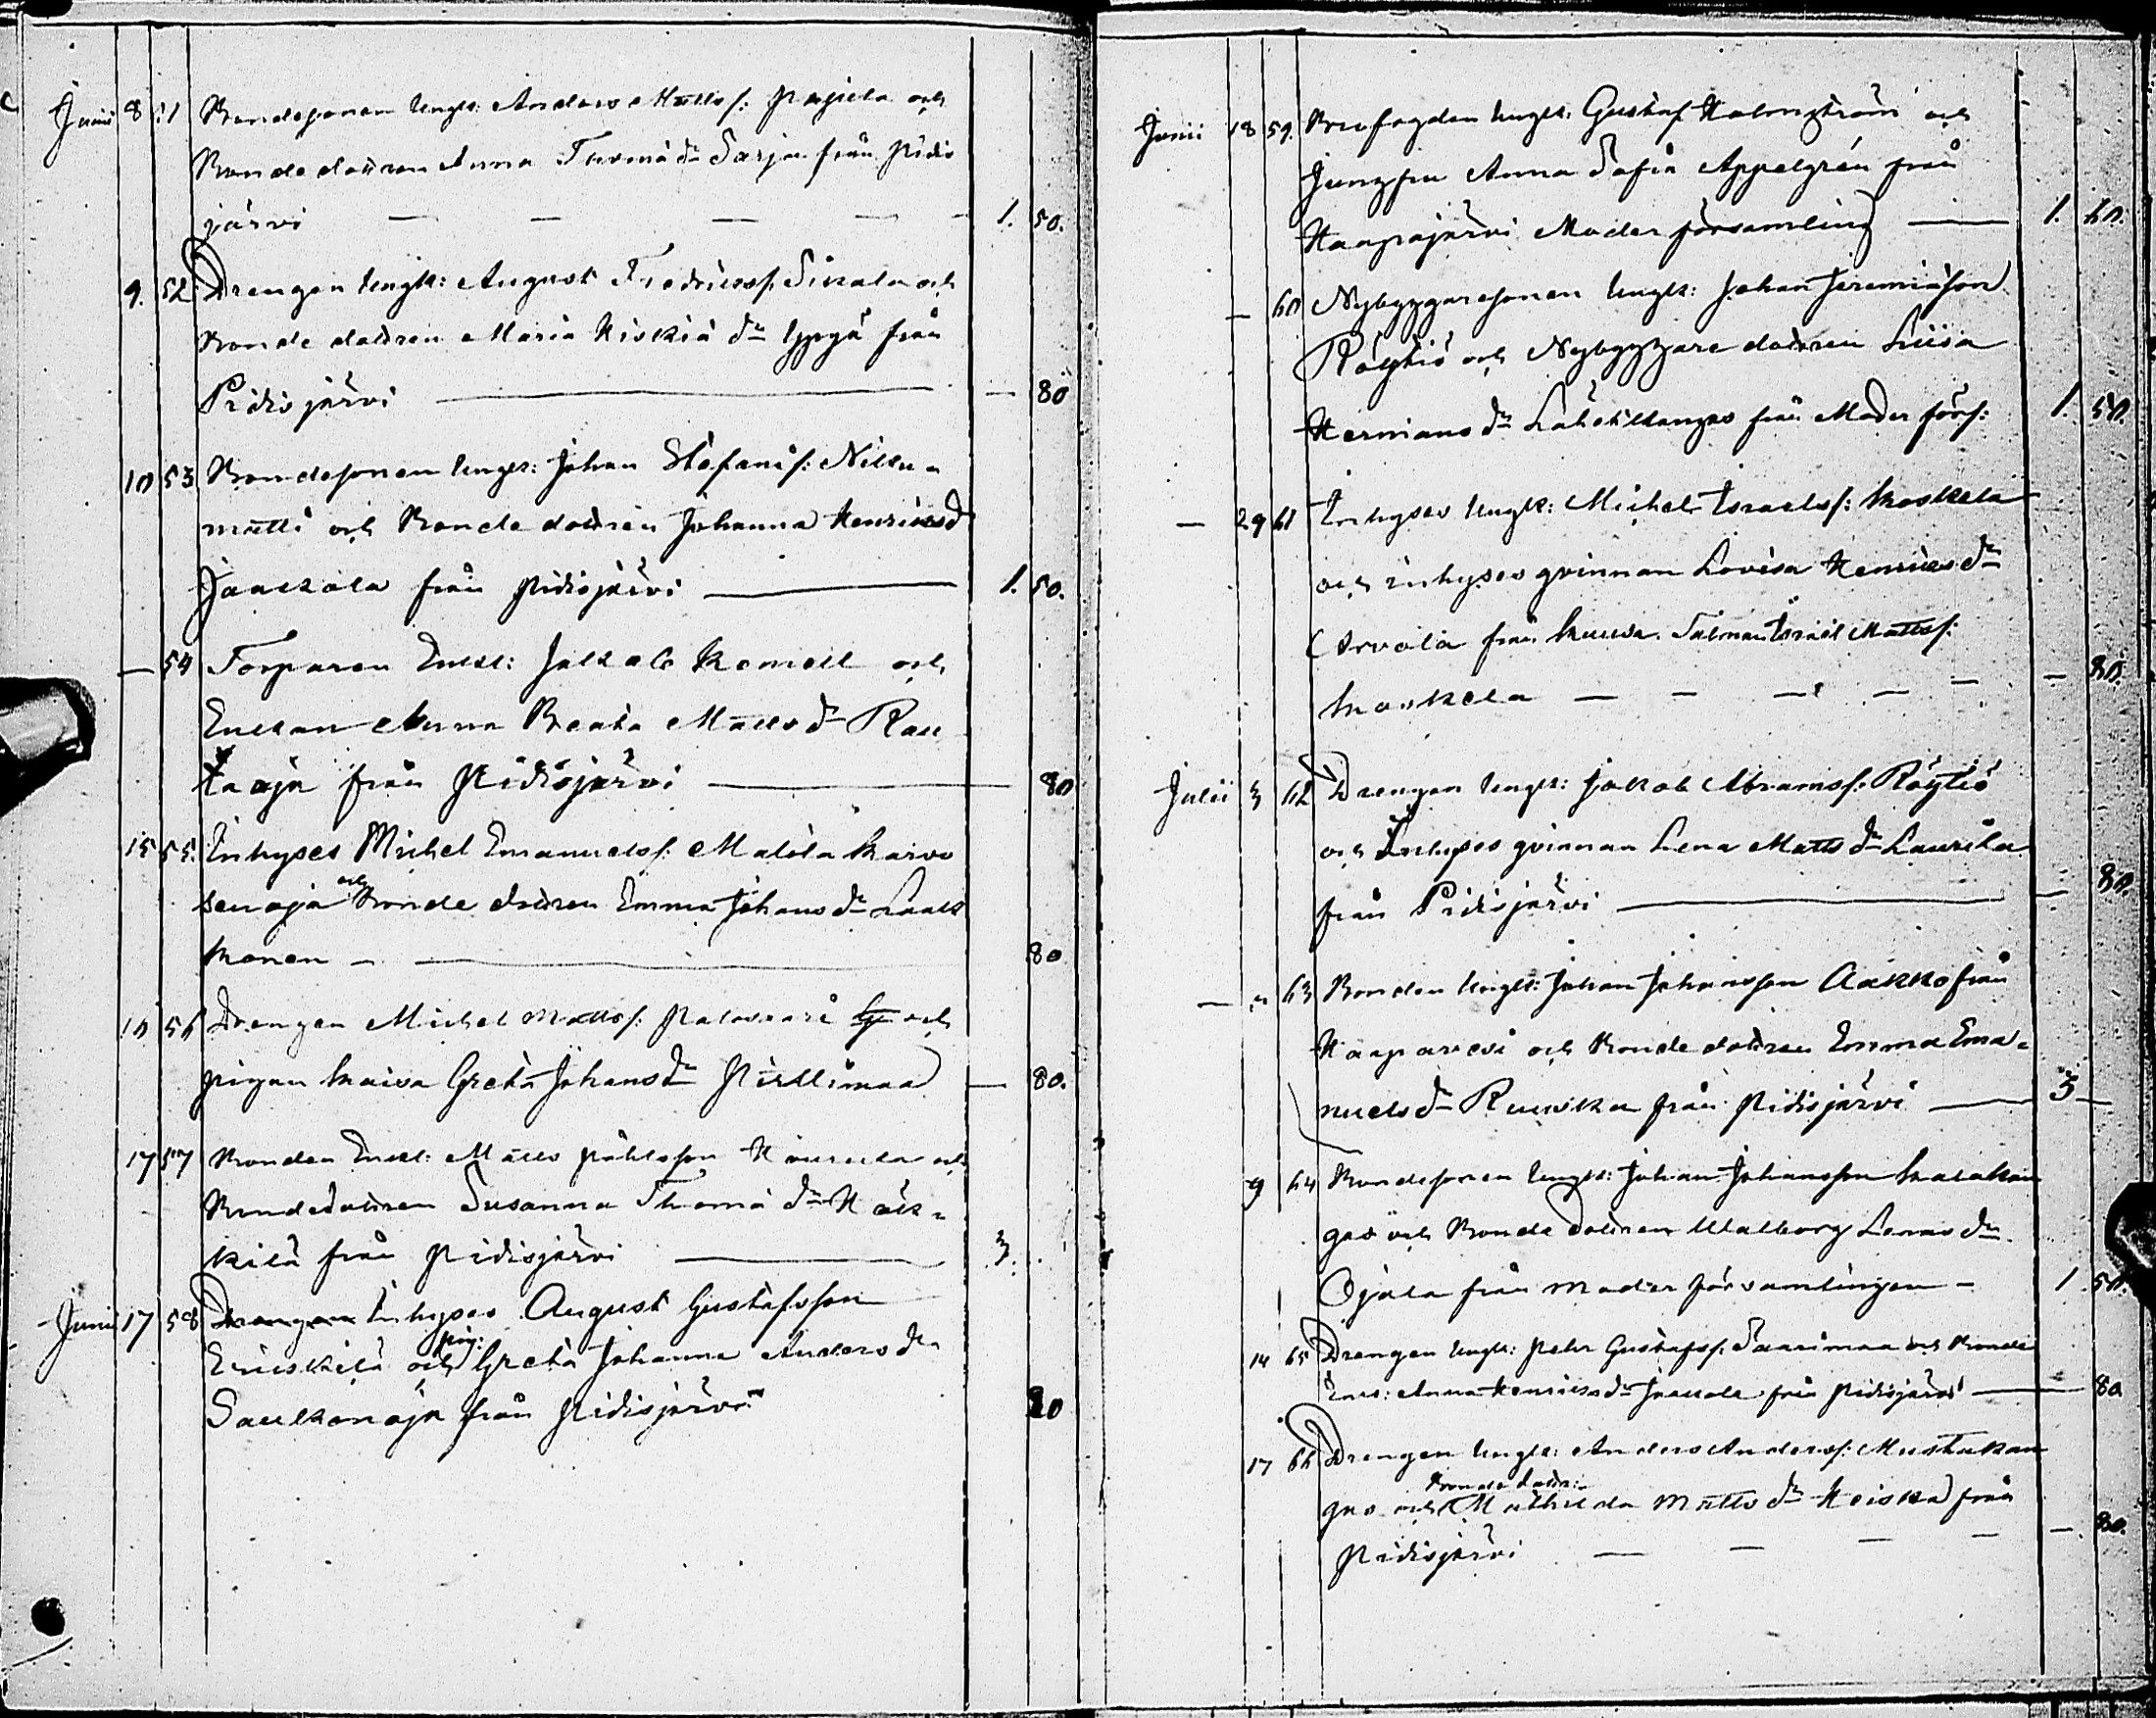 Junii 8 51 Bondesonen Ungk: Anders Mattsf: Pajula och
Bonde dottren Anna Thomæ dr Sarja från Pidis
järvi — — — — 1. 50.
9. 52 Drengen Ungk: August Fredricsf. Sikala och
Bonde dottren Maria Kiskiä dr Yppyä från
Pidisjärvi — 80
10 53 Bondesonen Ungk: Johan Stefansf: Niku-
matti och Bonde dottren Johanna Henricsd
Jaakola från Pidisjärvi — 1. 50.
— 54 Torparen Enkl: Jakob Kemell och
Enkan Anna Beata Matts dr Rau
taoja från Pidisjärvi — 80
15 55. Inhyses Michel Emanuelsf. Matila Karvo
senoja och Bonde dottren Emma Johans dr Laak
konen — 80
16 56 Drengen Michel Mattsf. Palovaari och
pigan Kaisa Greta Johans dr Pirttimaa — 80.
17 57 Bonden Enkl: Matts Påhlsson och
Bondedottren Susanna Thomæ dr Häk-
kilä från Pidisjärvi — 3.
Junii 17 58 Drengen Inhyses August Gustafsson
Erickilä och pig: Greta Johanna Anders dr
Saukonoja från Pidisjärvi 80
Junii 18 59. Brofogden Ungk: Gustaf Holmström och
Jungfru Anna Sofia Appelgrén från
Haapajärvi Moder församling — 1. 60.
— 60 Nybyggaresonen Ungk: Johan Jeremiasson
Röytiö och Nybyggare dottren Liisa
Hermans dr Lähetkangas från Moder förs: 1. 50.
— 29 61 Inhyses Ungk: Michel Israelsf: Koskela
och inhyses qvinnan Lovisa Henrics dr
Arvola från Israel Mattsf:
Koskela — — — — — 80.
Julii 3 62 Drengen Ungk: Jakob Abramsf: Röytiö
och Inhyses qvinnan Lena Matts dr Laurila
från Pidisjärvi — 80.
— " 63 Bonden Ungk: Johan Johansson Aakko från
Haapavesi och Bonde dottren Emma Ema-
nuels dr Ruuska från Pidisjärvi — 3 —
9 64 Bondesonen Ungk: Johan Johansson Kalakan
gas och Bonde dottren Walborg Lenas dr
Ojala från moder församlingen — 1. 50.
14 65 Drengen Ungk: Pehr Gustafsf: Saarimaa och Bonde
Enk: Anna Henrics dr Jaakola från Pidisjärvi — 80
17 66 Drengen Ungk: Anders Andersf: Mustakan
gas och Bonde dottr: Mathilda Matts dr Heiska från
Pidisjärvi — — — — 80.